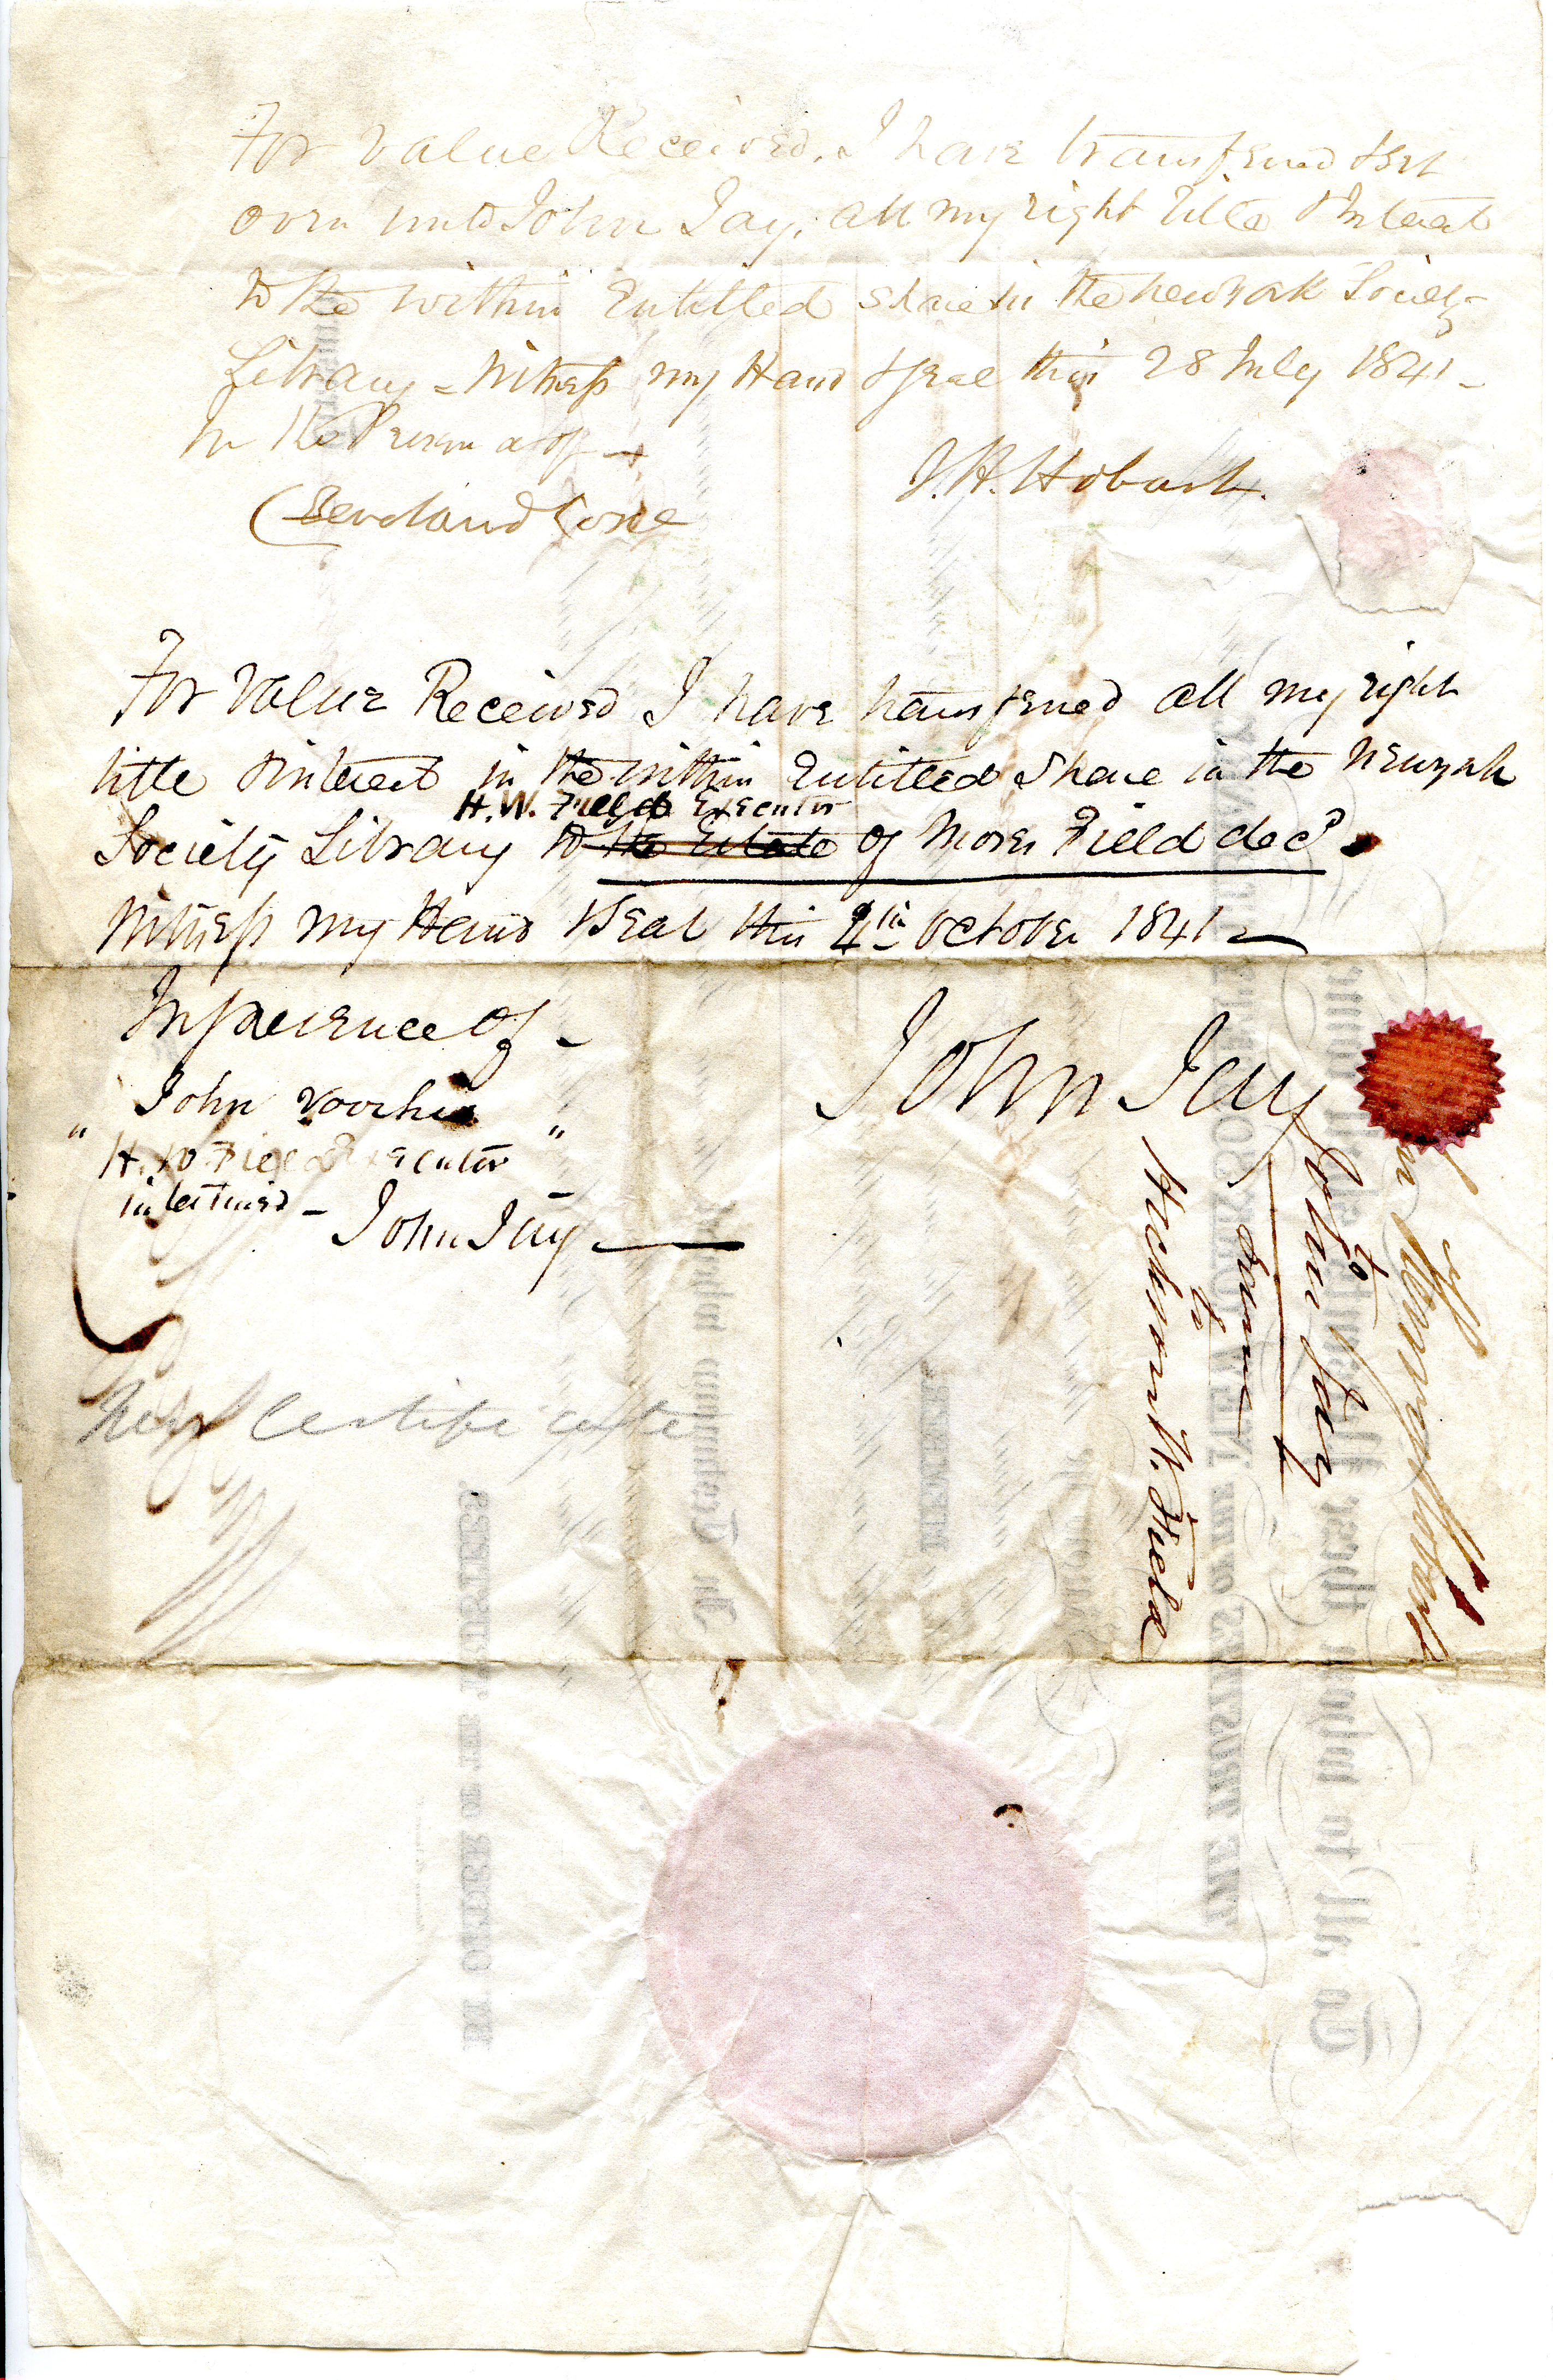 For Value Received, I have transferred & set
over unto John Jay, all my right title & Interest
to the within Entitled Share in the New York Society
Library - Witness my Hand & Seal this 28 July 1841 -
In the Presence of -
J. H. Hobart.
Cleveland Coxe
For Value Received I have transferred all my right
title & interest in the within Entitled Share in the New York
H. W. Field Executor
Society Library to the Estate of Moses Field decd.
Witness my Hand & Seal this 4th October 1841 -
In presence of -
John Jay
John Voorhies
" H. W. Field Executor "
interlined -
John Jay
New Certificate
Hobart
to
John Jay
Same
to
Hickson W. Field